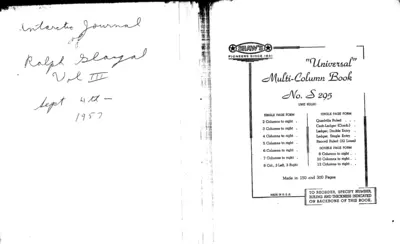 Antarctic Journal
of
Ralph Glasgal
Vol III
Sept 4th —
1957
SHAW'S
PIONEERS SINCE
"Universal"
Multi-Column Book
No. S 295
SINGLE PAGE FORM
2 Columns to right
3 Columns to right
4 Columns to right
5 Columns to right
6 Columns to right
7 Columns to right
SINGLE PAGE FORM
Quadrille Ruled
Ledger, Double Entry
Ledger, Single Entry
Record Ruled
DOUBLE PAGE FORM
8 Columns to right
10 Columns to right
12 Columns to right
Made in 150 and 300 Pages
MADE IN U.S.A.
TO REORDER, SPECIFY NUMBER,
RULING AND THICKNESS INDICATED
ON BACKBONE OF THIS BOOK.